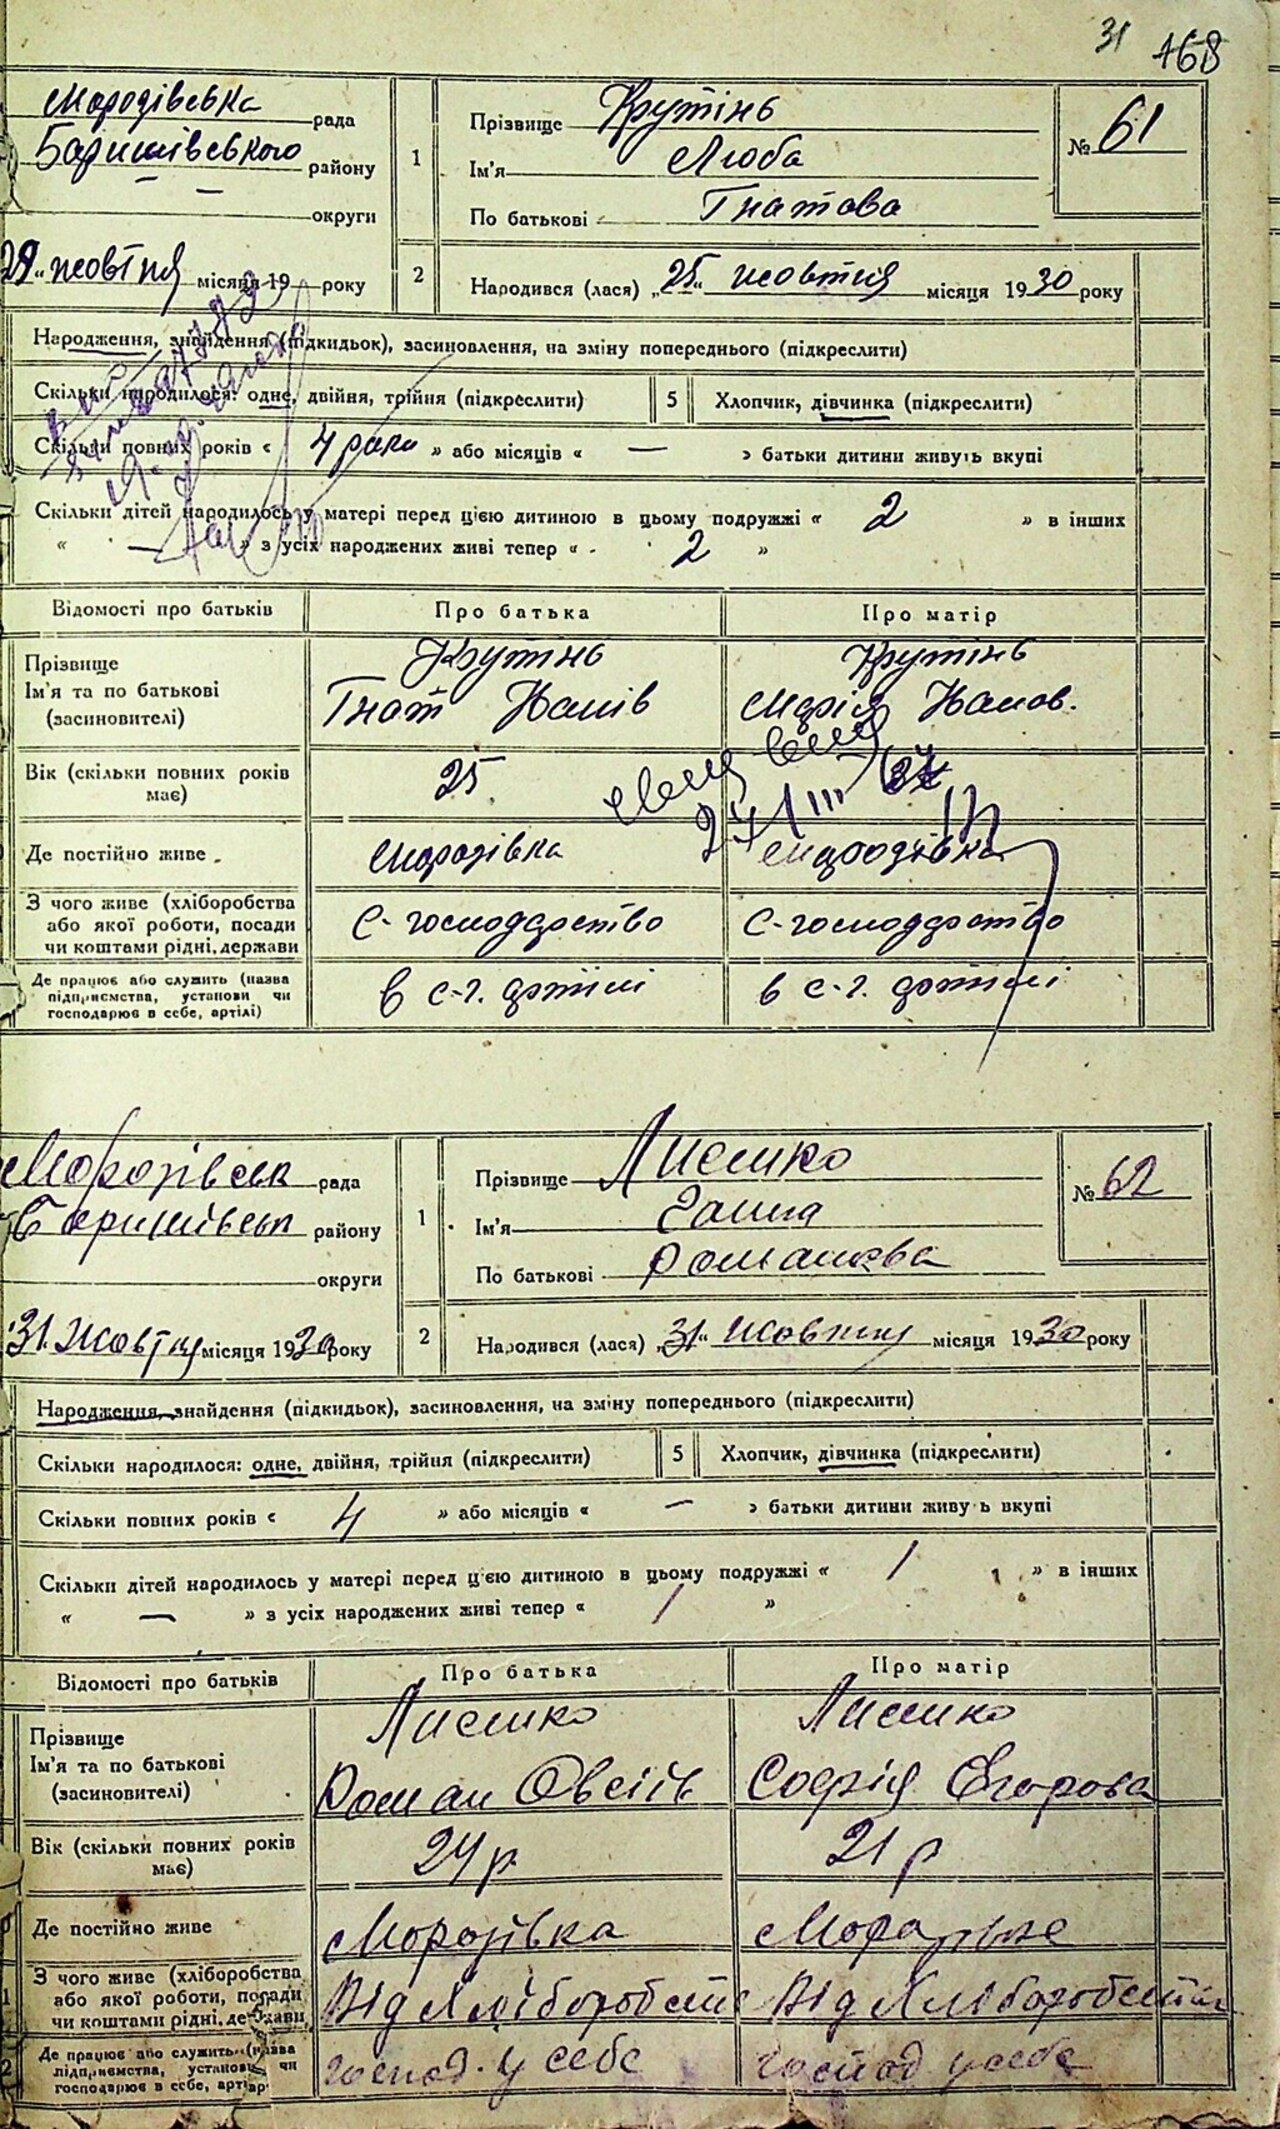 31 168
Морозівська рада
Баришівського району
— — округи
29 „ жовтня місяця 19 року
1
Прізвище Крутінь
Ім'я Люба
По батькові Гнатова
№ 61
2
Народився (лася) „25“ жовтня місяця 1930 року
Народження, знайдення (підкидьок), засиновлення, на зміну попереднього (підкреслити)
Скільки народилося: одне, двійня, трійня (підкреслити) 5 Хлопчик, дівчинка (підкреслити)
Скільки повних років « 4 роки » або місяців « — » батьки дитини живуть вкупі
Скільки дітей народилось у матері перед цією дитиною в цьому подружжі « 2 » в інших
« — » з усіх народжених живі тепер « 2 »
Відомості про батьків Про батька Про матір
Прізвище Крутінь Крутінь
Ім'я та по батькові Гнат Іванів Марія Іванов.
(засиновителі)
Вік (скільки повних років має) 25
24/III 37
Де постійно живе Морозівка Морозівка
З чого живе (хліборобства С-господарство С-господарство
або якої роботи, посади
чи коштами рідні, держави
Де працює або служить (назва в с-г. артілі в с-г. артілі
підприємства, установи чи
господарює в себе, артілі)
Морозівськ рада
Баришівськ району
округи
31. Жовтня місяця 1930 року
1
Прізвище Лисенко
Ім'я Ганна
По батькові Романова
№ 62
2
Народився (лася) „31“ Жовтня місяця 1930 року
Народження, знайдення (підкидьок), засиновлення, на зміну попереднього (підкреслити)
Скільки народилося: одне, двійня, трійня (підкреслити) 5 Хлопчик, дівчинка (підкреслити)
Скільки повних років « 4 » або місяців « — » батьки дитини живуть вкупі
Скільки дітей народилось у матері перед цією дитиною в цьому подружжі « 1 » в інших
« — » з усіх народжених живі тепер « 1 »
Відомості про батьків Про батька Про матір
Прізвище Лисенко Лисенко
Ім'я та по батькові Роман Овсіїв Софія Єгорова
(засиновителі)
Вік (скільки повних років має) 24 р 21 р
Де постійно живе Морозівка Морозівка
З чого живе (хліборобства Від Хліборобств Від Хліборобства
або якої роботи, посади
чи коштами рідні, держави
Де працює або служить (назва господ. у себе господ у себе
підприємства, установи чи
господарює в себе, артілі